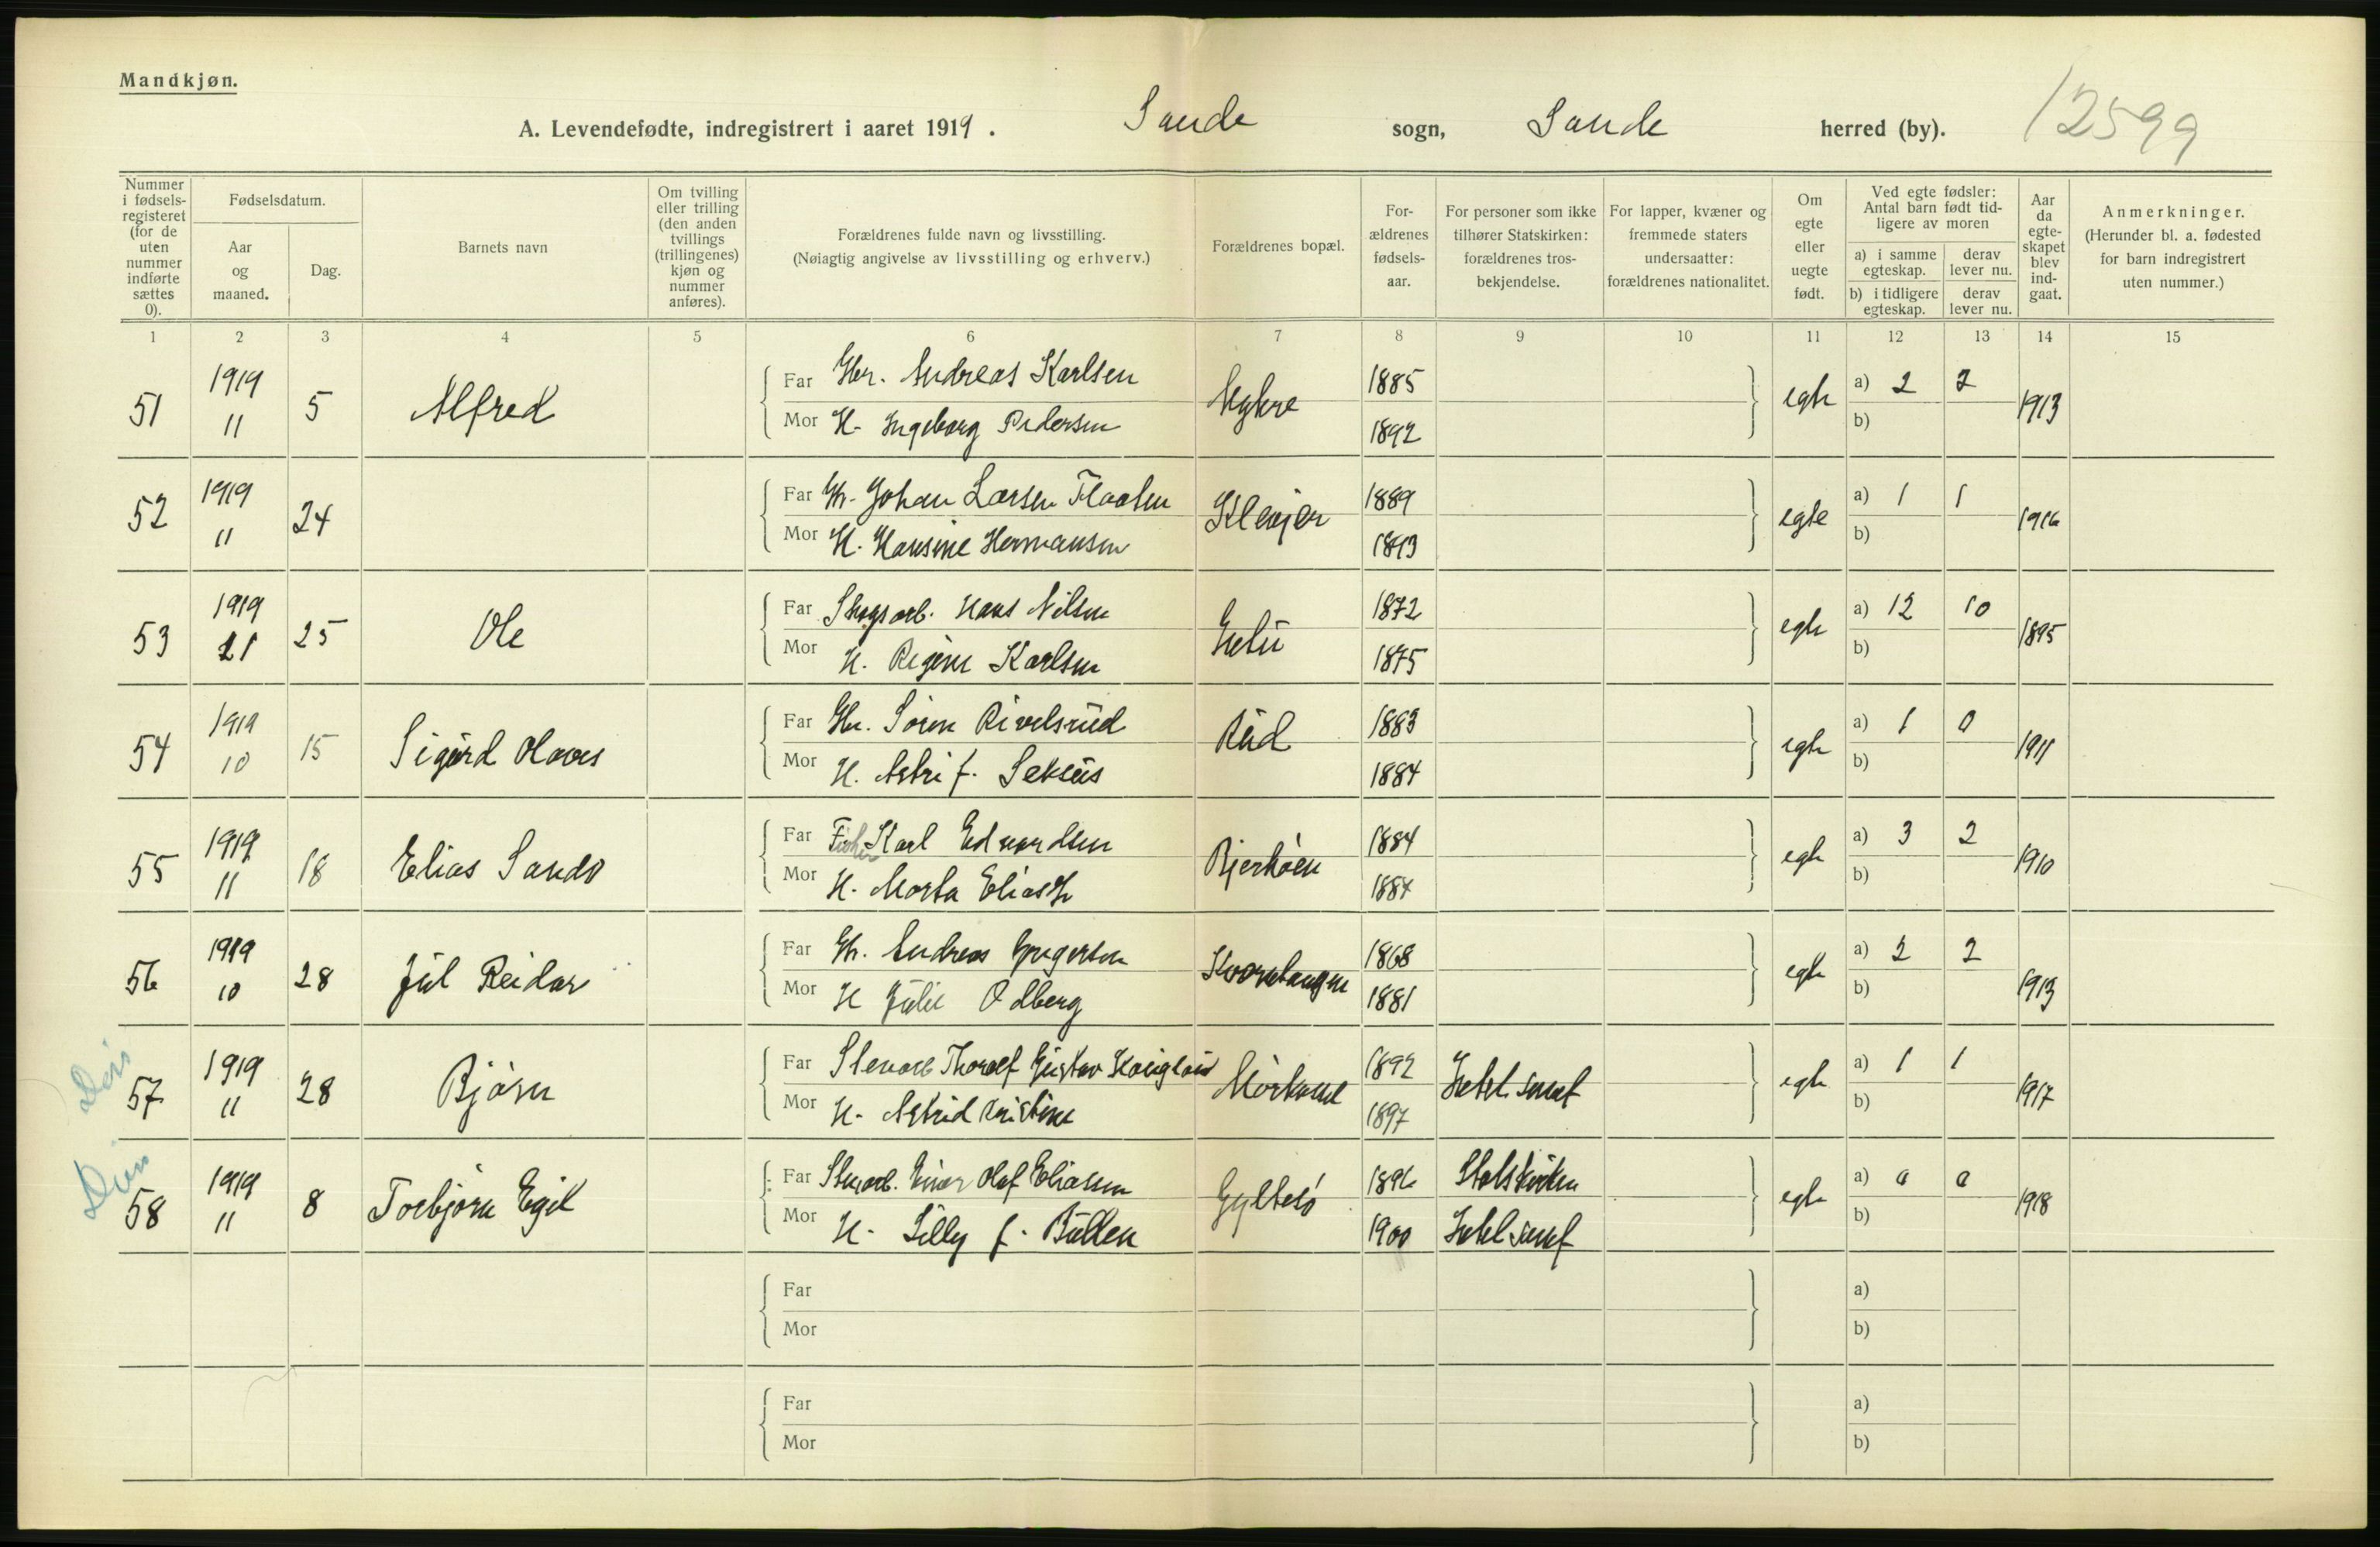 Mandkjøn.
A. Levendefødte, indregistrert i aaret 1919. Sande sogn, Sande herred (by). 12599
Nummer i fødsels-registeret (for de uten nummer indførte sættes 0).
Fødselsdatum.
Aar og maaned.
Dag.
Barnets navn
Om tvilling eller trilling (den anden tvillings (trillingenes) kjøn og nummer anføres).
Forældrenes fulde navn og livsstilling.
(Nøiagtig angivelse av livsstilling og erhverv.)
Forældrenes bopæl.
For-ældrenes fødsels-aar.
For personer som ikke tilhører Statskirken: forældrenes tros-bekjendelse.
For lapper, kvæner og fremmede staters undersaatter: forældrenes nationalitet.
Om egte eller uegte født.
Ved egte fødsler: Antal barn født tid-ligere av moren
a) i samme egteskap.
derav lever nu.
b) i tidligere egteskap.
derav lever nu.
Aar da egte-skapet blev ind-gaat.
Anmerkninger.
(Herunder bl. a. fødested for barn indregistrert uten nummer.)
1 2 3 4 5 6 7 8 9 10 11 12 13 14 15
51 1919 11 5 Alfred
Far Gbr. Andreas Karlsen 1885 a) 2 2
Mor H. Ingeborg Pedersen 1892 b)
egte 1913
52 1919 11 24
Far Johan Larsen 1889 a) 1 1
Mor H. Hansine Hermansen 1893 b)
Klevjer egte 1916
53 1919 11 25 Ole
Far Skogsarb. Hans Nilsen 1872 a) 12 10
Mor H. Regine Karlsen 1875 b)
egte 1895
54 1919 10 15 Sigurd Olaves
Far Gbr. Søren Rivelsrud 1883 a) 1 0
Mor H. Astri f. 1884 b)
Rud egte 1911
55 1919 11 18 Elias Sando
Far Fisker Karl Edvardsen 1884 a) 3 2
Mor H. Marta 1884 b)
Bjerkøen egte 1910
56 1919 10 28 Jul Reidar
Far Andreas 1868 a) 2 2
Mor H Julie Odberg 1881 b)
egte 1913
57 1919 11 28 Bjørn
Far Stenarb Thoralf Gustav 1892 a) 1 1
Mor H. Astrid Kristine 1897 b)
egte 1917
58 1919 11 8 Torbjørn Egil
Far Stenarb. Einar Olaf Eliassen 1896 Statskirken a) 0 0
Mor H. Lilly f. Bullen 1900 b)
egte 1918
Far a)
Mor b)
Far a)
Mor b)